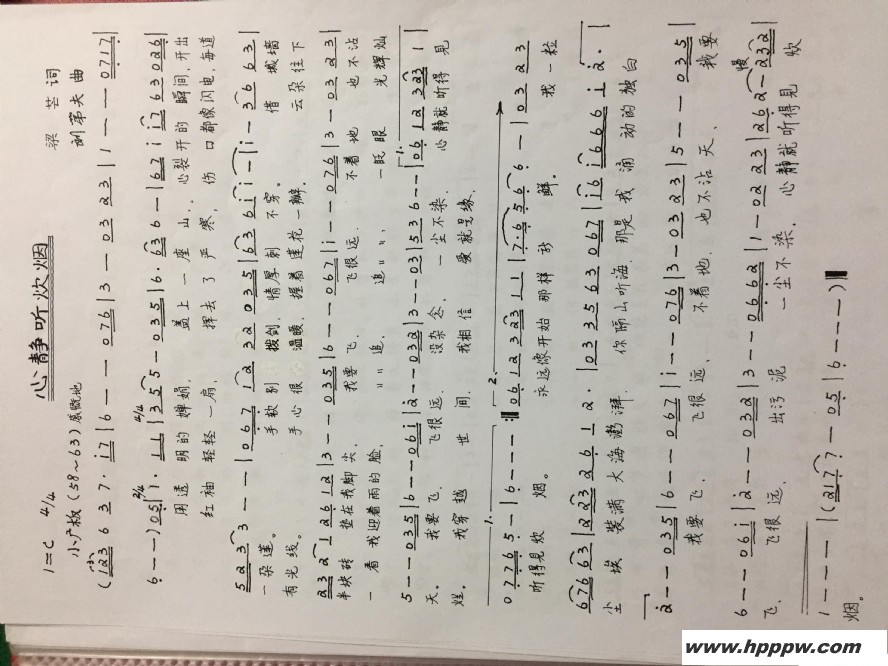 心静听炊烟
梁芒 词
刘第夫 曲
1=C 4/4
小广板(58~63)感慨地
(123 6 3 7· i7|6 - - 076|3 - 03 23|1 - - 0717|
6 - - -)05|1· 11|3 5 5 - 035|6· 63 6 -|67 i i7 63 026|
用透 明的婵娟, 盖上 一座 山.. 心裂开的 瞬间,开出
红袖 轻轻一扇, 挥去 了严 寒, 伤 口都像闪电,每道
523 3 - -|067 12 32 035|63 6i i -|i - 36 63|
一朵莲。 手软别 拨剑, 情厚刺 不穿。 借 城墙
有光线。 手心很 温暖, 握着莲花一瓣, 云朵往下
232 1 26 12|3 - - 035|6 - - 067|i - - 076|3 - 03 23|
半块砖 垫在我脚尖, 我要飞, 飞很远. 不着地 也不沾
一看我迎着雨的脸, 〃〃追, 追〃〃, 一眨眼 光辉灿
5 - - 035|6 - - 06i|2 - - 032|3 - - 03|53 6 - -|06 12 323 1|
天。 我要飞. 飞很远. 没杂念. 一尘不染. 心静就听得见
烂。 我穿越 世间. 我相信 爱就是缘.
07765 -|6 - - -:‖06 12 323 11|7·6 56 6 -|03 23
听得见炊 烟。 永远像开始那样 新鲜。 我一粒
6763|2232612·|033563067|i6i666i2·|
尘埃 装满大海澎湃. 你隔山听海. 那是我涌动的独白
2 - - 035|6 - - 067|i - - 076|3 - 0323|5 - - 035|
我要飞. 飞很远. 不着地. 也不沾天. 我要
慢
6 - - 06i|2 - - 032|3 - - 0662|1 - 0223|262 - 232|
飞. 飞很远. 出污泥 一尘不染. 心静就听得见 炊
1 - - -|(2177 - 05|6 - - -)‖
烟。
www.hpppw.com